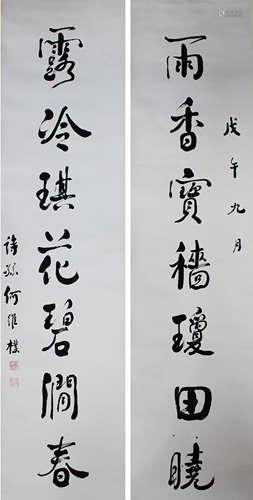 戊午九月
雨香寶穡瓊田曉
露冷琪花碧澗春
詩孫何維樸